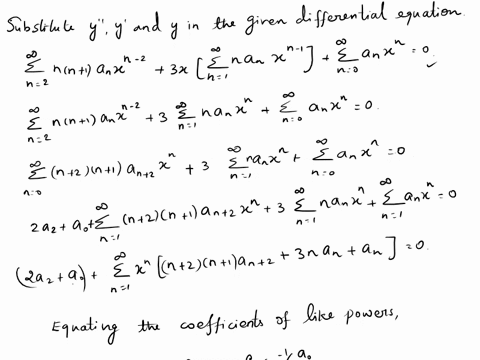 Substitute y'', y' and y in the given differential equation.
∞∑n=2 n(n+1) aₙxⁿ⁻² + 3x [∞∑n=1 n aₙ xⁿ⁻¹] + ∞∑n=0 aₙxⁿ = 0. ✓
∞∑n=2 n(n+1) aₙxⁿ⁻² + 3 ∞∑n=1 naₙxⁿ + ∞∑n=0 aₙxⁿ = 0.
∞∑n=0 (n+2)(n+1) aₙ₊₂ xⁿ + 3 ∞∑n=1 naₙxⁿ + ∞∑n=0 aₙxⁿ = 0
2a₂ + a₀ + ∞∑n=1 (n+2)(n+1) aₙ₊₂ xⁿ + 3 ∞∑n=1 naₙxⁿ + ∞∑n=1 aₙxⁿ = 0
(2a₂ + a₀) + ∞∑n=1 xⁿ [(n+2)(n+1)aₙ₊₂ + 3naₙ + aₙ] = 0.
Equating the coefficients of like powers,